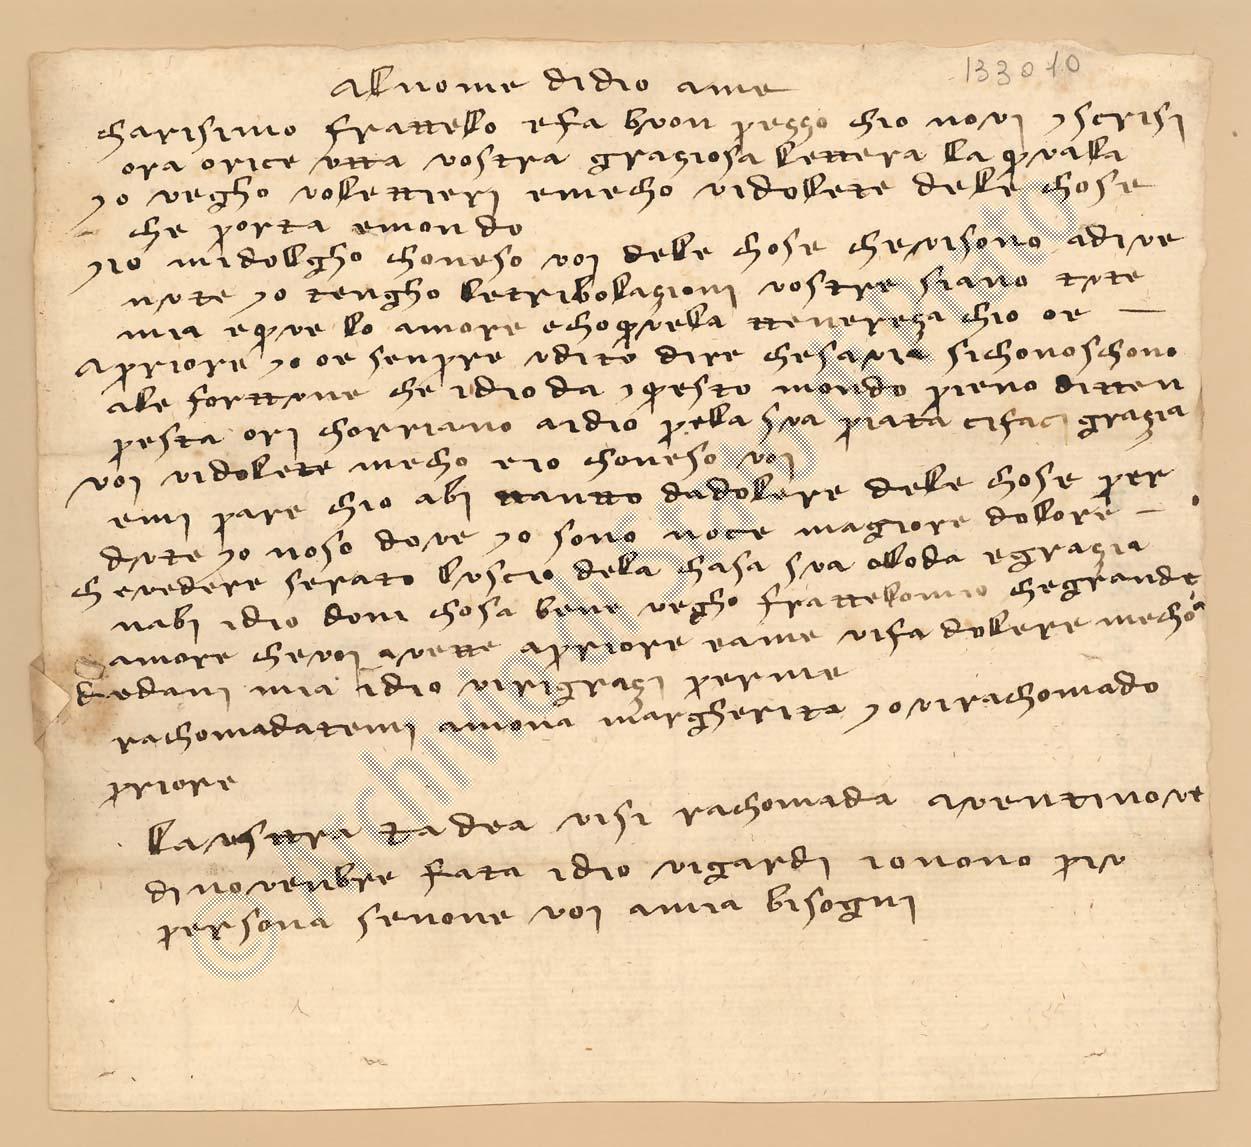 133010
al nome di dio ame
charisimo frattello e fa buon pezzo chio no vi yscrisi
ora orice utta vostra graziosa lettera la quala
yo vegho volettieri e mecho vi dolete dele chose
che porta e mondo
yio mi dolgho choneso voi dele chose che vi sono adive
nute yo tengho le tribolazioni vostre siano tute
mia e quelo amore e choquela ttenereza chio oe
a priore yo oe senpre udito dire che savia si chonoschono
ale forttune che idio da yquesto mondo pieno ditten
pesta ori chorriano a idio pela sua piata ci faci grazia
voi vi dolete mecho e io choneso voi
e mi pare chio abi ttantto dadolere dele chose per
dute yo noso dove yo sono noce magiore dolore
che vedere serato luscio dela chasa sua loda e grazia
nabi idio doni chosa bene vegho frattelo mio che grande
amore che voi avette a priore e a me vi fa dolere mecho
de dani mia idio vi rigrazi per me
rachomadatemi a mona margherita yo vi rachomado
priore
la vsttra tadea vi si rachomada a ventinove
di novenbre fata idio vi gardi io nono piu
persona senone voi a mia bisogni
© Archivio di Stato di Prato